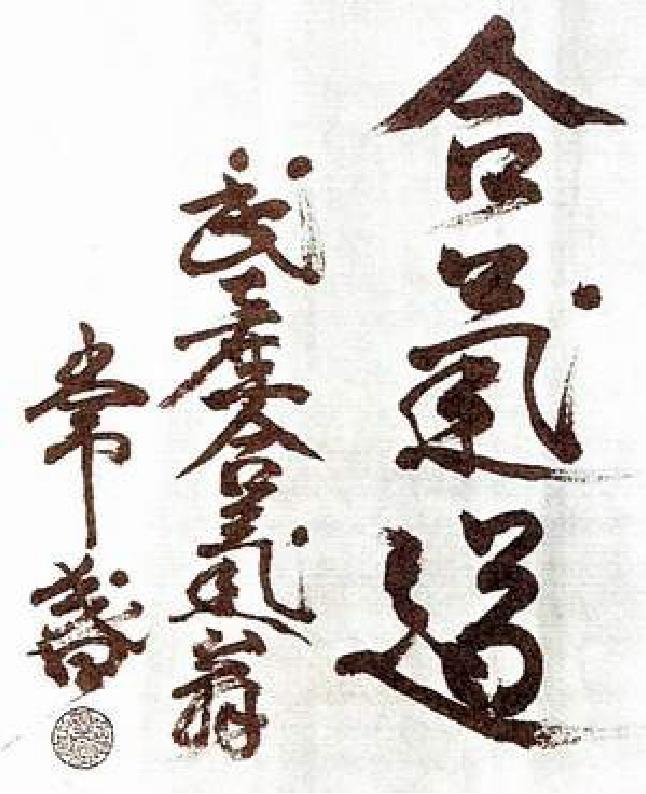 合氣道
武産合氣翁
常盛